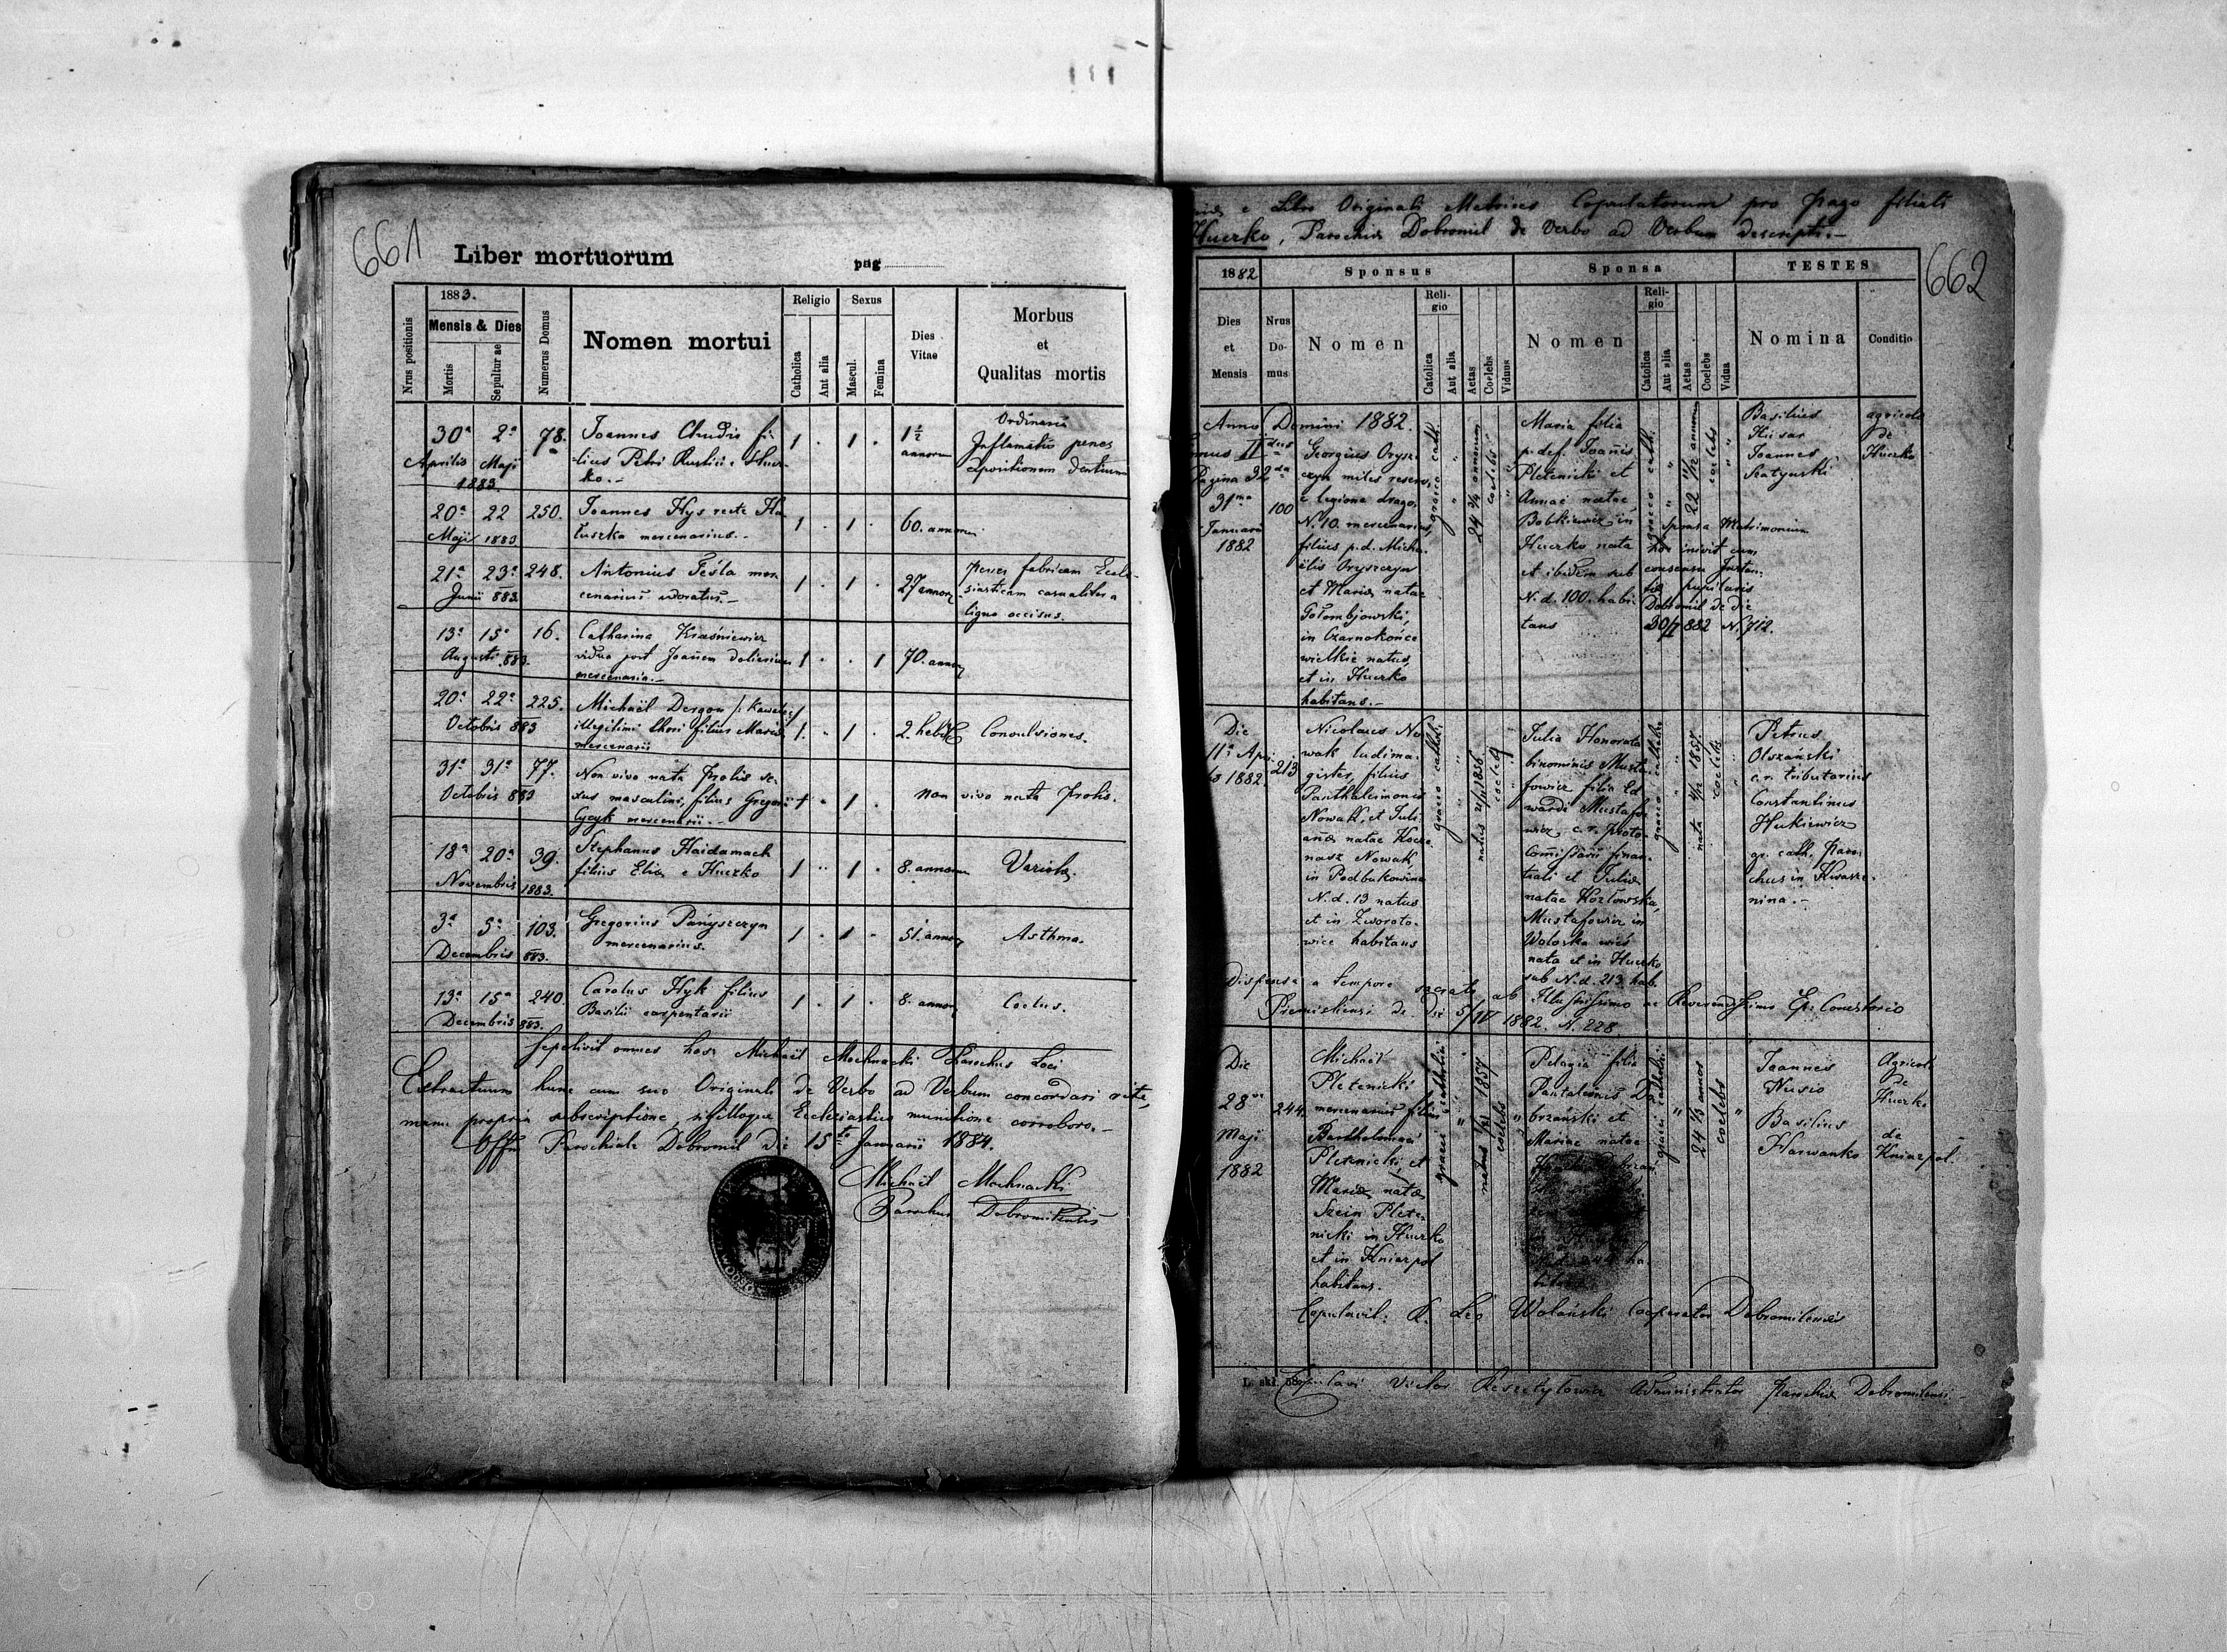 661
Liber mortuorum pag
Nrus positionis
1883.
Mensis & Dies
Mortis
Sepulturae
Numerus Domus
Nomen mortui
Religio
Catholica
Aut alia
Sexus
Mascul.
Femina
Dies
Vitae
Morbus
et
Qualitas mortis
30a 2a 78. Joannes Chudio fi-
Aprilis Maji lius Petri Rustici e Huer-
1883. ko.-
1 . 1 . 1 1/2
annorum
Ordinaria
Inflamatio penes
expositionem dentium
20a 22 250. Joannes Hys recte Ha-
Maji 1883 łuszka mercenarius.-
1 . 1 . 60. annorum
21a 23a 248. Antonius Teśla mer-
Junii 883. cenarius uxoratus.-
1 . 1 . 27 annor
penes fabricam Eccle-
siasticam casualiter a
ligno occisus.
13a 15a 16. Catharina Kraśniewicz
Augusti 883. vidua post Joannem
mercenaria.-
1 . . 1 70. annor
20a 22a 225. Michaël Dergon
Octobris 883 illegitimi thori filius Mariae
mercenarii
1. . 1 . 2. hebd Convulsiones.
31a 31a 77. Non vivo nata Prolis se-
Octobris 883 xus masculini, filius Gregorii
Cycyk mercenarii.-
1 . 1 . non vivo nata Prolis.
18a 20a 39. Stephanus Haidamach
Novembris 1883. filius Eliae e Huczko
1 .. 1 . 8. annorum Variola.
3a 5a 103. Gregorius Panyszczyn
Decembris 883. mercenarius.
1 . 1 . 51. annor Asthma.
13a 15a 240. Carolus Hyk filius
Decembris 883. Basilii carpentarii
1 . 1 . 8. annor
Sepelivit omnes hos Michaël Mochnacki Parochus Loci
Extractum hunc cum suo Originali de Verbo ad Verbum concordari rite,
manu propria subscriptione, sigilloque Ecclesiastico munitione corroboro.-
Offm Parochiale Dobromil die 15ta Januarii 1884.
Michaël Mochnacki
Parochus Dobromilensis
e Libro Originali Matrices Copulatorum pro Pago filiali
Huczko, Parochiae Dobromil de Verbo ad Verbum descripti.-
662
1882
Sponsus
Sponsa
TESTES
Dies
et
Mensis
Nrus
Do-
mus
Nomen
Reli-
gio
Catolica
Aut alia
Aetas
Coelebs
Viduus
Nomen
Reli-
gio
Catolica
Aut alia
Aetas
Coelebs
Vidua
Nomina
Conditio
Anno Domini 1882.
Pagina 32da
31ma
Januarii
1882
100
Georgius Orysz-
czyn miles reserv,
e legione drago,
N. 10. mercenarius,
filius p.d. Micha-
ëlis Oryszczyn
et Mariae natae
Gołombjowski,
in Czarnokońce
wielkie natus,
et in Huczko
habitans.-
graeco cath.
24 3/4 annorum
coelebs
Maria filia
p. def. Joannis
Pletenicki et
Annae natae
Bobkiewicz in
Huczko nata
et ibidem sub
N. d. 100. habi-
tans
graeco cath.
22 11/12 annorum
coelebs
sponsa Matrimonium
hoc inivit cum
consensu Instan-
tiae pupilaris
Dobromil de die
30/1 882 N. 712.
Basilius
Husar
Joannes
Statynski
agricola
de
Huczko
Die
11a Apri-
lis 1882.
213
Nicolaus No-
wak ludima-
gister, filius
Panthaleimonis
Nowak, et Juli-
annae natae Kocze-
nasz Nowak,
in Podbukowina
N. d. 13 natus
et in Zworoto-
wice habitans
graeco cathol.
coelebs
Julia Honorata
binominis Musta-
fowicz filia Ed-
wardi Mustafo-
wicz, c. r. Proto-
Comissarii finan-
tiali et Juliae
natae Kozłowska,
Mustafowicz in
Woloska wieś
nata et in Huczko
sub N. d. 213. hab.
coelebs
Petrus
Olszański
c. r. tributarius
Constantinus
Hukiewicz
gr. cath. Paro-
chus in Kwasze-
nina.-
Dispensa a tempore sacrato ab Illustrissimo ac Reverendissimo Ep. Consistorio
Premisliensi de die 5/IV 1882. N. 228
Die
28va
Maji
1882
244
Michaël
Pletenicki
mercenarius filius
Bartholomaei
Pletenicki et
Mariae, natae
Szein Plete-
nicki in Huczko
et in Kniazpol
habitans.
graeci catholici
coelebs
Pelagia filia
Pantaleonis Do-
brzański et
Mariae natae
24 1/3 annos
coelebs
Joannes
Nusio
Basilius
Harwanko
Agricola
de
Huczko
de
Kniazpol.
Copulavit: R. Leo Wolański Cooperator Dobromilensis
Copulavi Victor Reszetylowicz Administrator Parochiae Dobromilensi